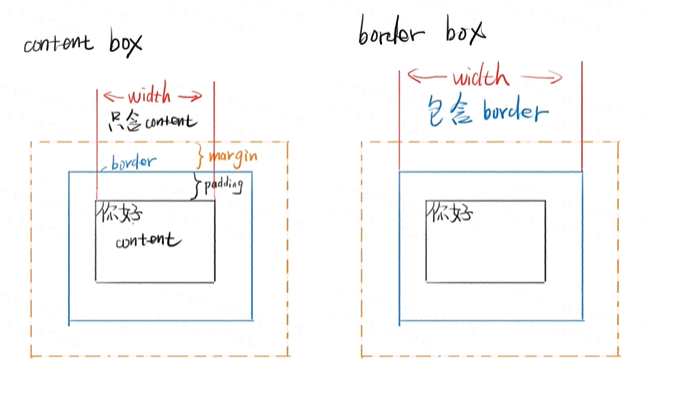 content box
width
只含content
border
margin
padding
你好
content
border box
width
包含 border
你好